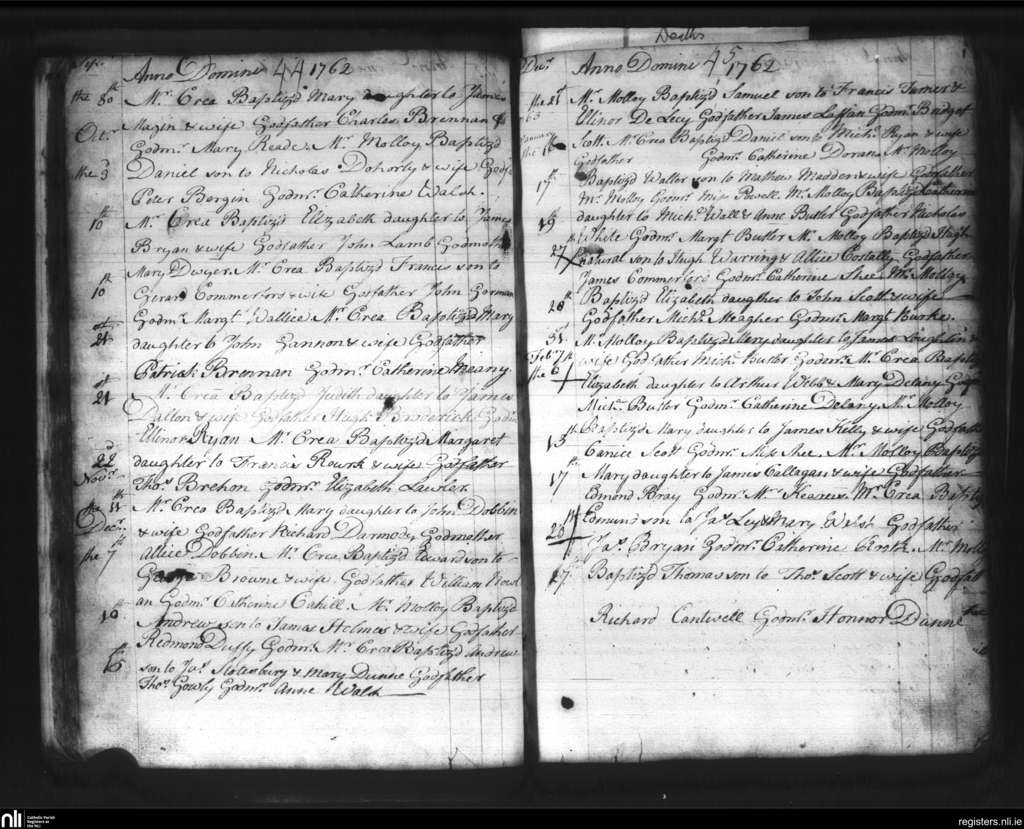 Deaths
Sepr.
Anno Domine 44 1762
the 30th Mr. Crea Baptiz'd Mary daughter to James
Octr. Magin & wife Godfather Charles Brennan &
Godmr. Mary Reade. Mr. Molloy Baptiz'd
the 3 Daniel son to Nicholas Dohorty & wife Godfr.
Peter Bergin Godmr. Catherine Walsh.
10th Mr. Crea Baptiz'd Elizabeth daughter to James
Bryan & wife Godfather John Lamb Godmothr.
Mary Dwyer. Mr. Crea Baptiz'd Francis son to
10th Gerard Commerford & wife Godfather John Gorman
Godmr. Margt. Wallice Mr. Crea Baptiz'd Mary
21st daughter to John Gannon & wife Godfather
Patrick Brennan Godmr. Catherine Meany.
21st Mr. Crea Baptiz'd Judith daughter to James
Dalton & wife Godfather Hugh Broderick Godmr.
Ellinor Ryan Mr. Crea Baptiz'd Margaret
22nd daughter to Francis Rourk & wife Godfather
Novr. Thos. Brehon Godmr. Elizabeth Lawler.
the 11th Mr. Crea Baptiz'd Mary daughter to John Dobbin
Decr. & wife Godfather Richard Darmody Godmother
the 7th Allice Dobbin. Mr. Crea Baptiz'd Edward son to
George Browne & wife Godfather William Nowl
an Godmr. Catherine Cahill. Mr. Molloy Baptiz'd
10th Andrew son to James Holmes & wife Godfather
Redmond Duffy Godmr. Mr. Crea Baptiz'd Andrew
16th son to Jas. Stolesbury & Mary Dunne Godfather
Thos. Gowly Godmr. Anne Walsh
Decr. Anno Domine 45 1762
the 21st Mr. Molloy Baptiz'd Samuel son to Francis Turner &
63 Ellinor De Lecy Godfather James Laffan Godmr. Bridget
January the 16 Scott. Mr. Crea Baptiz'd Daniel son to Michl. Ryan & wife
Godfather Godmr. Catherine Doran. Mr. Molloy
17th Baptiz'd Walter son to Mathew Madden & wife Godfather
Mr. Molloy Godmr. Miss Powell. Mr. Molloy Baptiz'd Catherine
19th daughter to Michl. Wall & Anne Butler Godfather Nicholas
White Godmr. Margt. Butler Mr. Molloy Baptiz'd Hugh
27th natural son to Hugh Warring & Allice Costally Godfather
James Commerford Godmr. Catherine Shee. Mr. Molloy
28th Baptiz'd Elizabeth daughter to John Scott & wife
Godfather Michl. Meagher Godmr. Margt. Burke.
31 Mr. Molloy Baptiz'd Mary daughter to James Loughlin &
Feby. wife Godfather Michl. Butler Godmr. Mr. Crea Baptiz'd
the 6th Elizabeth daughter to Arthur Webb & Mary Delany Godfr.
Michl. Butler Godmr. Catherine Delany. Mr. Molloy
13th Baptiz'd Mary daughter to James Kelly & wife Godfather
Eanice Scott Godmr. Miss Shee. Mr. Molloy Baptiz'd
17th Mary daughter to James Callagan & wife Godfather
Edmond Bray Godmr. Mrs. Kearns. Mr. Crea Baptiz'd
20th Edmund son to Jas. Ley & Mary Welsh Godfather
Jas. Bryan Godmr. Catherine Mr. Moll
27th Baptiz'd Thomas son to Thos. Scott & wife Godfat
Richard Cantwell Godmr. Honnor Dunne
nli
Catholic Parish
Registers at
the NLI
registers.nli.ie